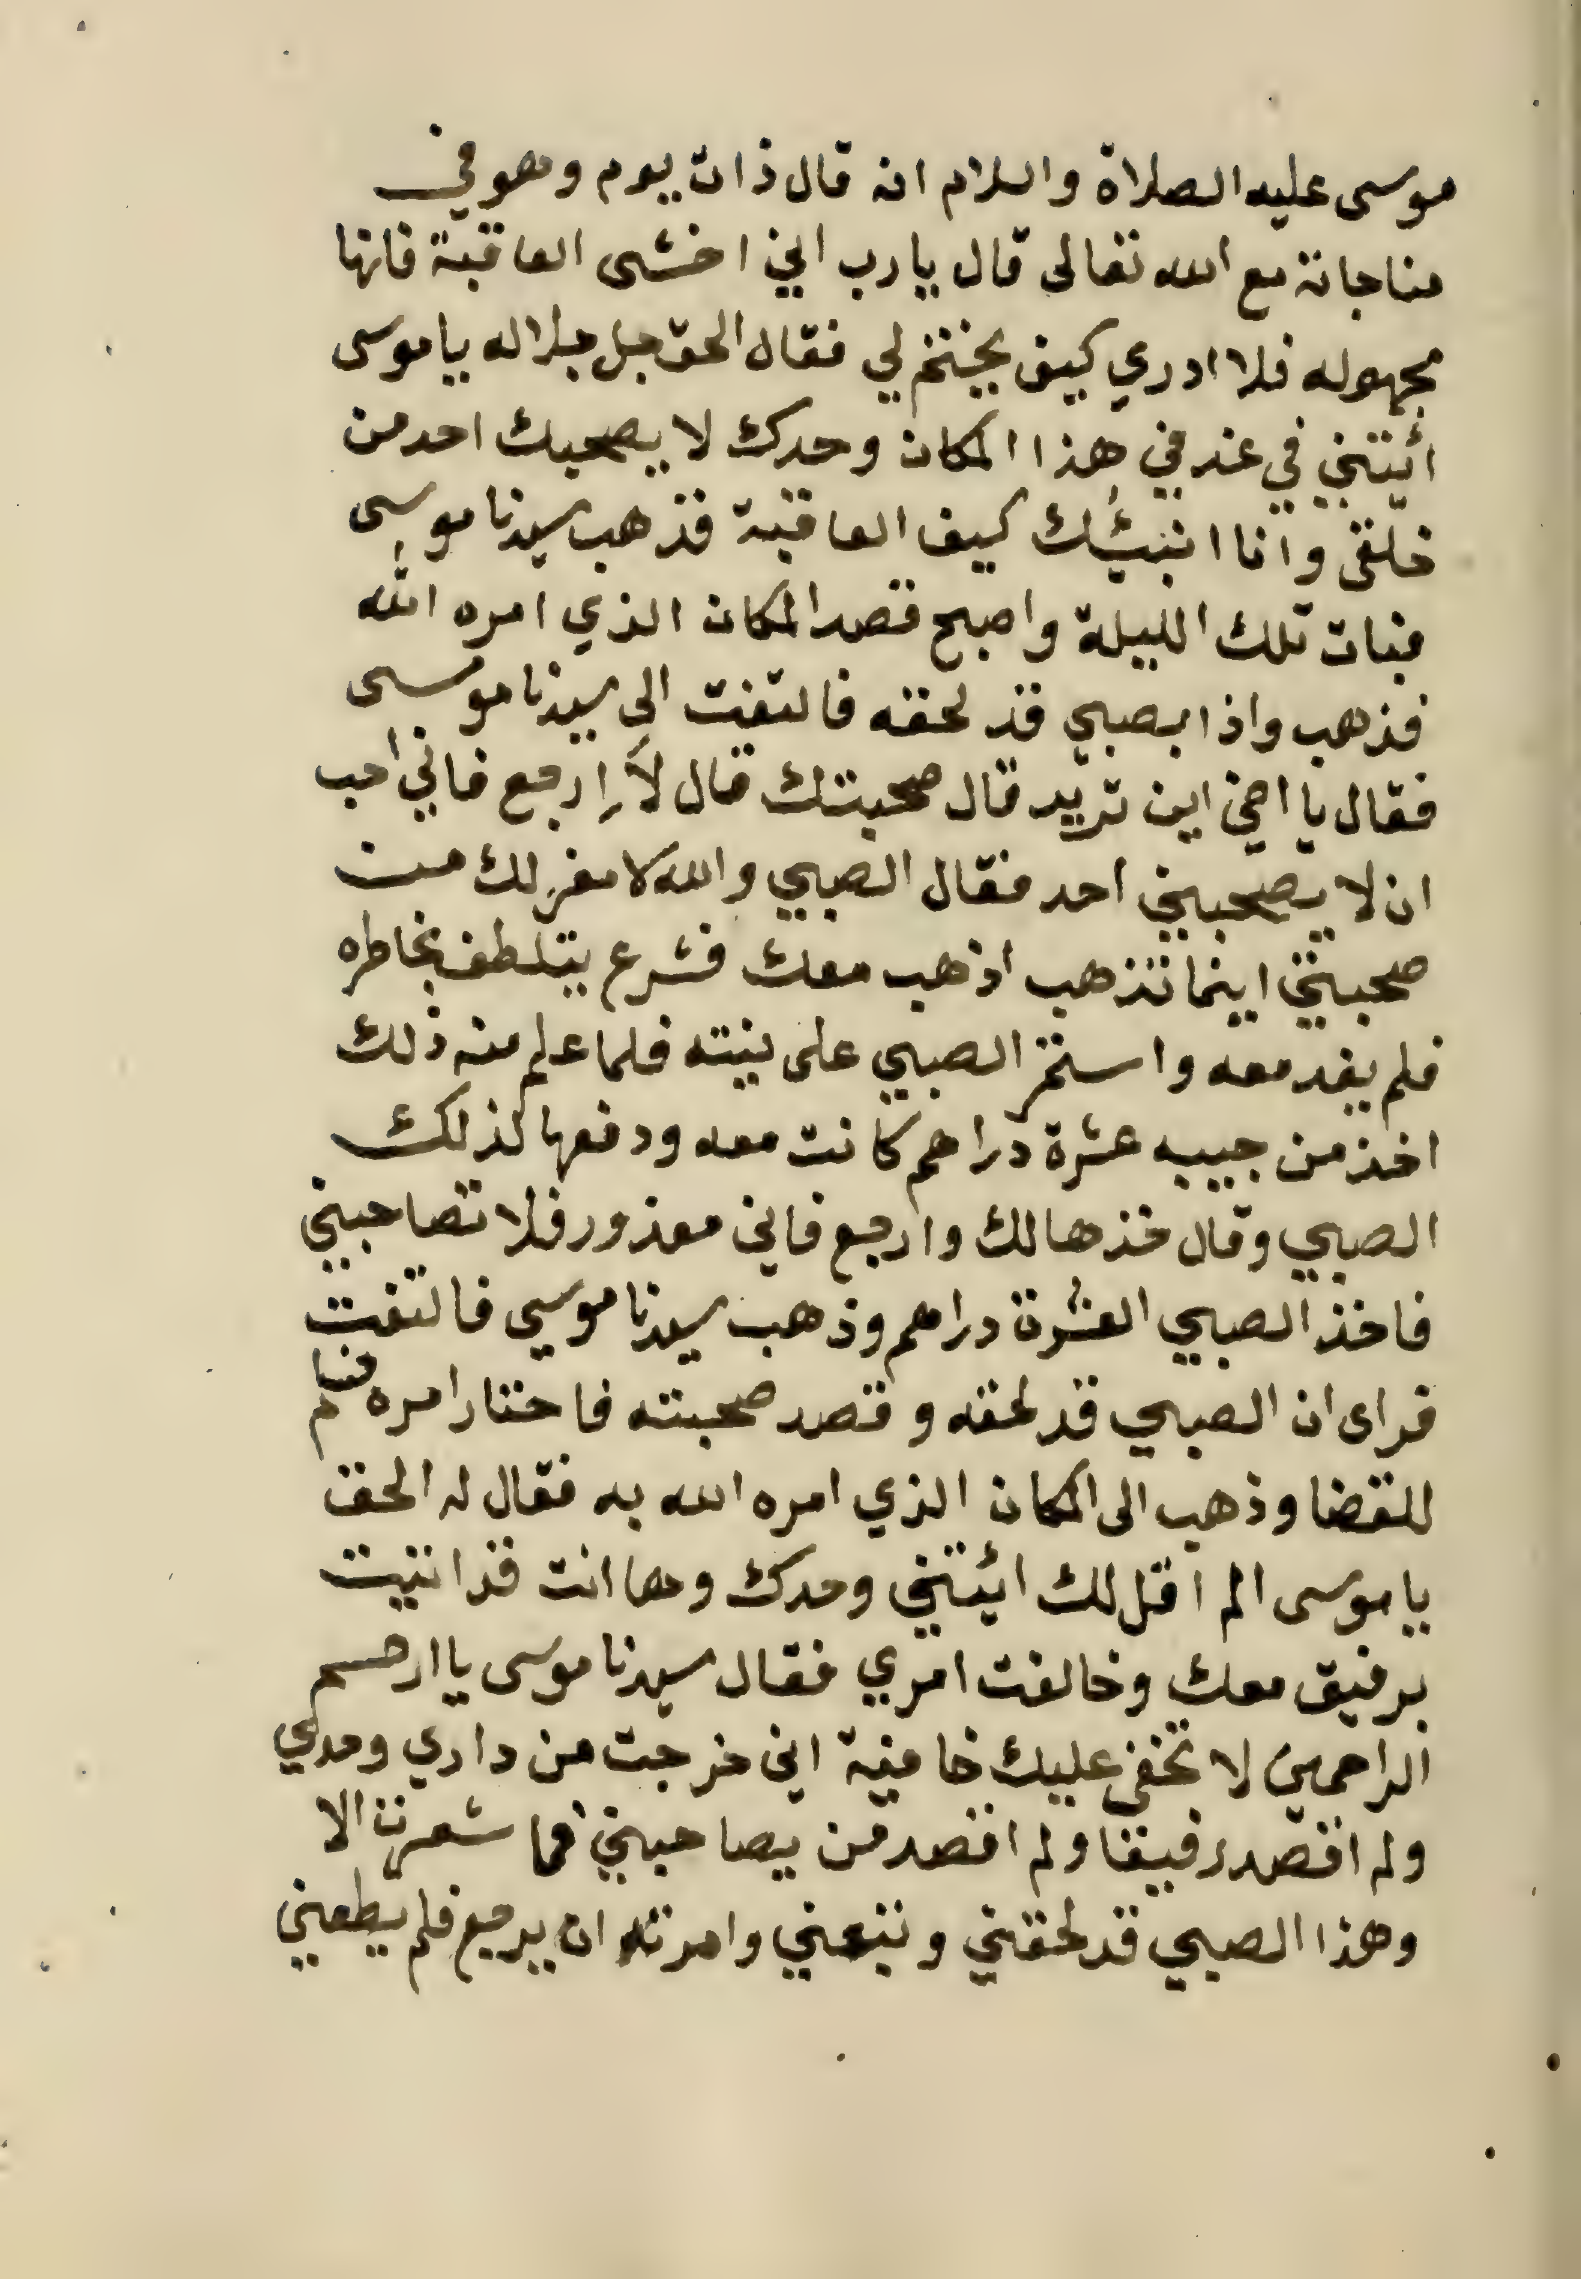 موسى عليه الصلاة والسلام انه قال ذات يوم وهو في
مناجاته مع الله تعالى قال يا رب اني اخشى العاقبة فانها
مجهوله فلا ادري كيف يختم لي فقال الحق جل جلاله يا موسى
أئتني في غد في هذا المكان وحدك لا يصحبك احد من
خلقي وانا انبئك كيف العاقبة فذهب سيدنا موسى
فبات تلك الليلة واصبح قصد المكان الذي امره الله
فذهب واذا بصبي قد لحقه فالتفت الي سيدنا موسى
فقال يا اخي اين تريد قال صحبتك قال لا ارجع فاني احب
ان لا يصحبني احد فقال الصبي والله لا مفر لك من
صحبتي اينما تذهب اذهب معك فشرع يتلطف بخاطره
فلم يفد معه واستمر الصبي على نيته فلما علم منه ذلك
اخذ من جيبه عشرة دراهم كانت معه ودفعها لذلك
الصبي وقال خذها لك وارجع فاني معذور فلا تصاحبني
فاخذ الصبي العشرة دراهم وذهب سيدنا موسي فالتفت
فراى ان الصبي قد لحقه وقصد صحبته فاحتار امره فسلم
للقضا وذهب الى المكان الذي امره الله به فقال له الحق
يا موسى الم اقل لك ائتني وحدك وها انت قد اتيت
برفيق معك وخالفت امري فقال سيدنا موسى يا ارحم
الراحمين لا تخفى عليك خافية اني خرجت من داري وحدي
ولم اقصد رفيقا ولم اقصد من يصاحبني فما شعرت الا
وهذا الصبي قد لحقني وتبعني وامرته ان يرجع فلم يطعني